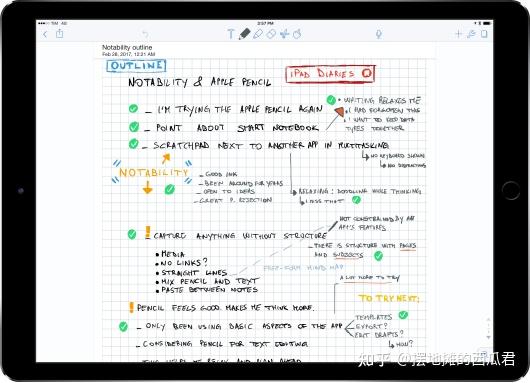 2:57 PM
Notability outline
Feb 28, 2017, 12:21 AM
OUTLINE
NOTABILITY & APPLE PENCIL
iPAD DIARIES
- I'M TRYING THE APPLE PENCIL AGAIN
- POINT ABOUT START NOTEBOOK
- SCRATCHPAD NEXT TO ANOTHER APP IN MULTITASKING
• WRITING RELAXES ME
• I HAD FORGOTTEN THAT
• I WANT TO KEEP DATA
TYPES TOGETHER
NO KEYBOARD SHOWN
NO DISTRACTING
"NOTABILITY"
- GOOD INK
- BEEN AROUND FOR YEARS
- OPEN TO IDEAS
- GREAT P. REJECTION
RELAXING: DOODLING WHILE THINKING
I MISS THAT
! - CAPTURE ANYTHING WITHOUT STRUCTURE
NOT CONSTRAINED BY AN
APP'S FEATURES
- THERE IS STRUCTURE WITH PAGES
AND SUBJECTS
• MEDIA
• NO LINKS?
• STRAIGHT LINES
• MIX PENCIL AND TEXT
• PASTE BETWEEN NOTES
FREE-FORM MIND MAP
A LOT MORE TO TRY
! PENCIL FEELS GOOD. MAKES ME THINK MORE.
TO TRY NEXT:
- ONLY BEEN USING BASIC ASPECTS OF THE APP
TEMPLATES
EXPORT?
EDIT DRAFTS?
HOW?
- CONSIDERING PENCIL FOR TEXT EDITING
知乎 @摆地摊的西瓜君